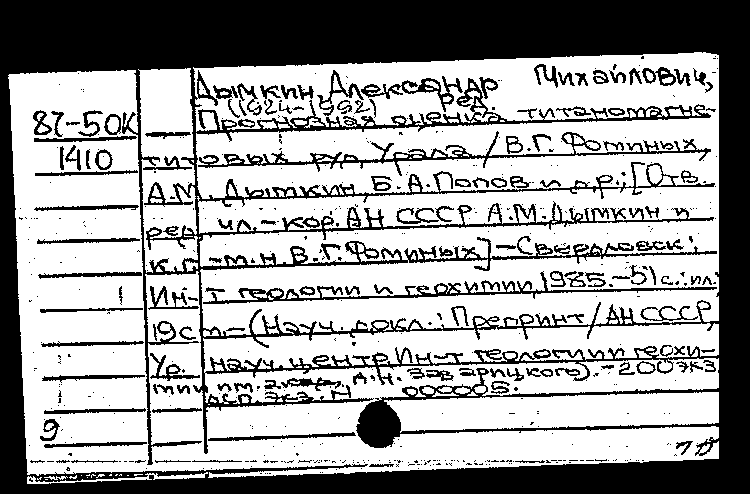 Дымкин, Александр Михайлович,
(1924-1992) ред.
87-50К Прогнозная оценка титаномагне-
1410 титовых руд Урала / В.Г. Фоминых,
А.М. Дымкин, Б.А. Попов и др.; [Отв.
ред. чл.-кор. АН СССР А.М. Дымкин и
к.г.-м.н. В.Г. Фоминых] - Свердловск:
1 Ин-т геологии и геохимии, 1985.-51 с.: ил.;
19 см.-(Науч. докл.: Препринт / АН СССР,
Ур. науч. центр, Ин-т геологии и геохи-
мии им. акад. А.Н. Заварицкого).-200 экз.
дсп. экз. N 000005.
9